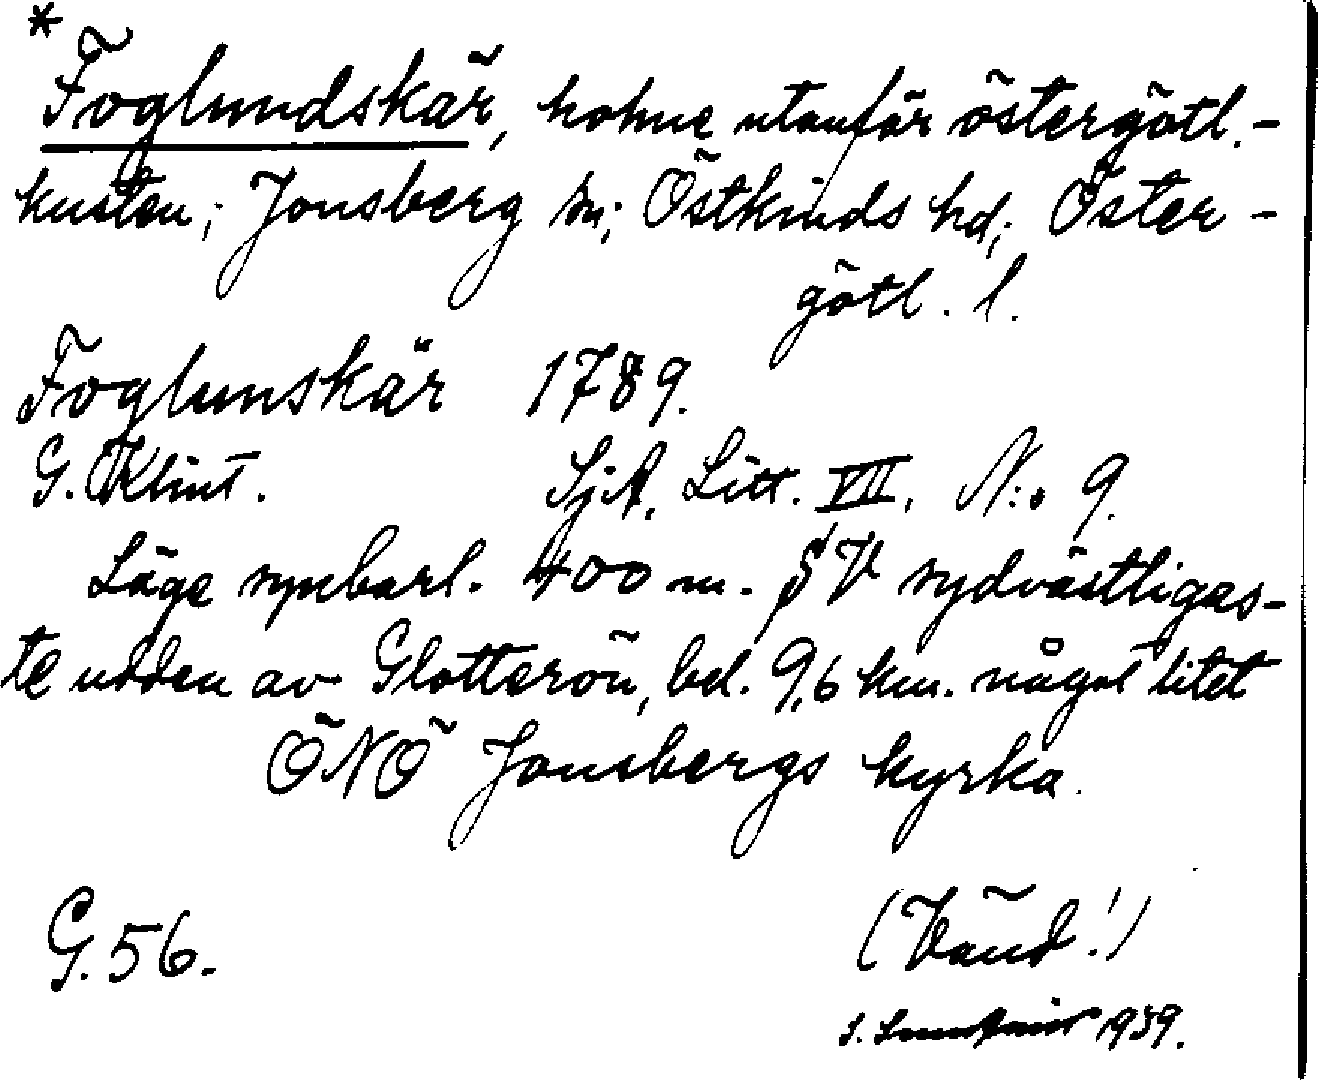 *
Foglundskär, holme utanför östergötl.-
kusten; Jonsberg sn; Östkinds hd; Öster-
götl. l.
Foglunskär 1789.
G. Klint. SjA. Litt. VII. N:o 9.
Läge synbarl. 400 m. SV sydvästligas-
te udden av Glotterön, bel. 9,6 km. något litet
ÖNÖ Jonsbergs kyrka.
G. 56. (Vänd!)
1939.